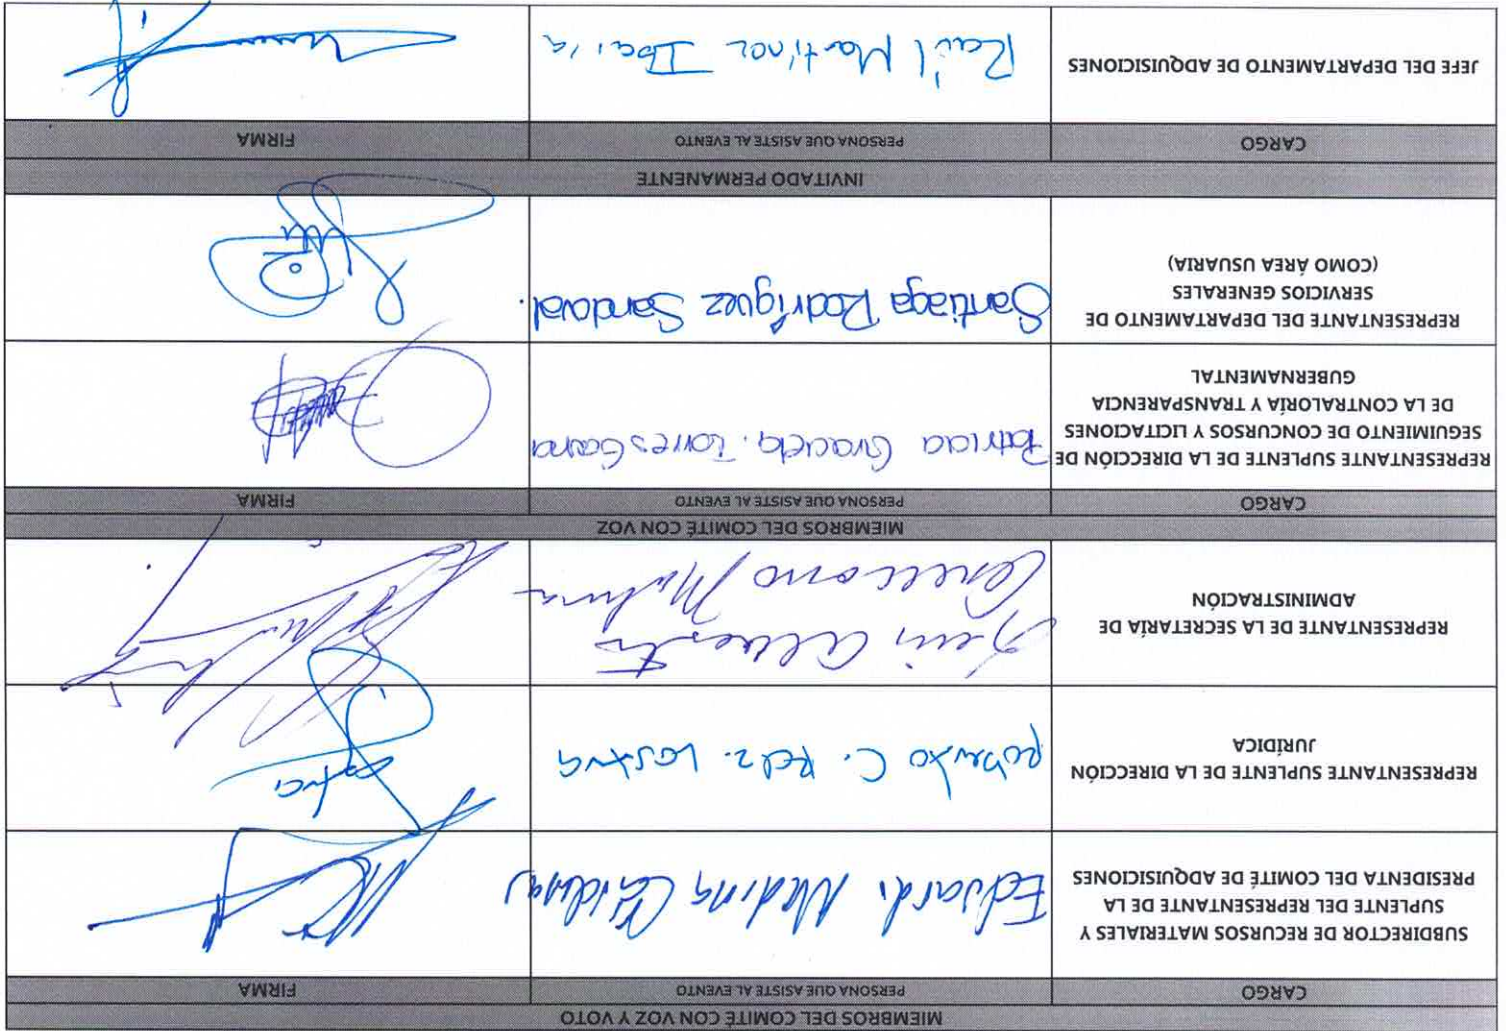 MIEMBROS DEL COMITÉ CON VOZ Y VOTO
CARGO PERSONA QUE ASISTE AL EVENTO FIRMA
SUBDIRECTOR DE RECURSOS MATERIALES Y
SUPLENTE DEL REPRESENTANTE DE LA
PRESIDENTA DEL COMITÉ DE ADQUISICIONES
Eduardo Medina Cárdenas
REPRESENTANTE SUPLENTE DE LA DIRECCIÓN
JURÍDICA
Roberto C. Rdz.
REPRESENTANTE DE LA SECRETARÍA DE
ADMINISTRACIÓN
Luis Alberto
MIEMBROS DEL COMITÉ CON VOZ
CARGO PERSONA QUE ASISTE AL EVENTO FIRMA
REPRESENTANTE SUPLENTE DE LA DIRECCIÓN DE
SEGUIMIENTO DE CONCURSOS Y LICITACIONES
DE LA CONTRALORÍA Y TRANSPARENCIA
GUBERNAMENTAL
Patricia Graciela Torres
REPRESENTANTE DEL DEPARTAMENTO DE
SERVICIOS GENERALES
(COMO ÁREA USUARIA)
Santiaga Rodríguez Sandoval.
INVITADO PERMANENTE
CARGO PERSONA QUE ASISTE AL EVENTO FIRMA
JEFE DEL DEPARTAMENTO DE ADQUISICIONES
Raúl Martínez